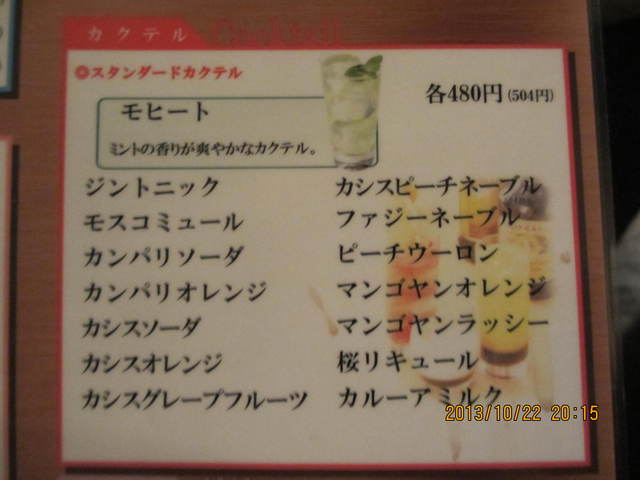 カクテル
◎スタンダードカクテル
各480円(504円)
モヒート
ミントの香りが爽やかなカクテル。
ジントニック
モスコミュール
カンパリソーダ
カンパリオレンジ
カシスソーダ
カシスオレンジ
カシスグレープフルーツ
カシスピーチネーブル
ファジーネーブル
ピーチウーロン
マンゴヤンオレンジ
マンゴヤンラッシー
桜リキュール
カルーアミルク
2013/10/22 20:15